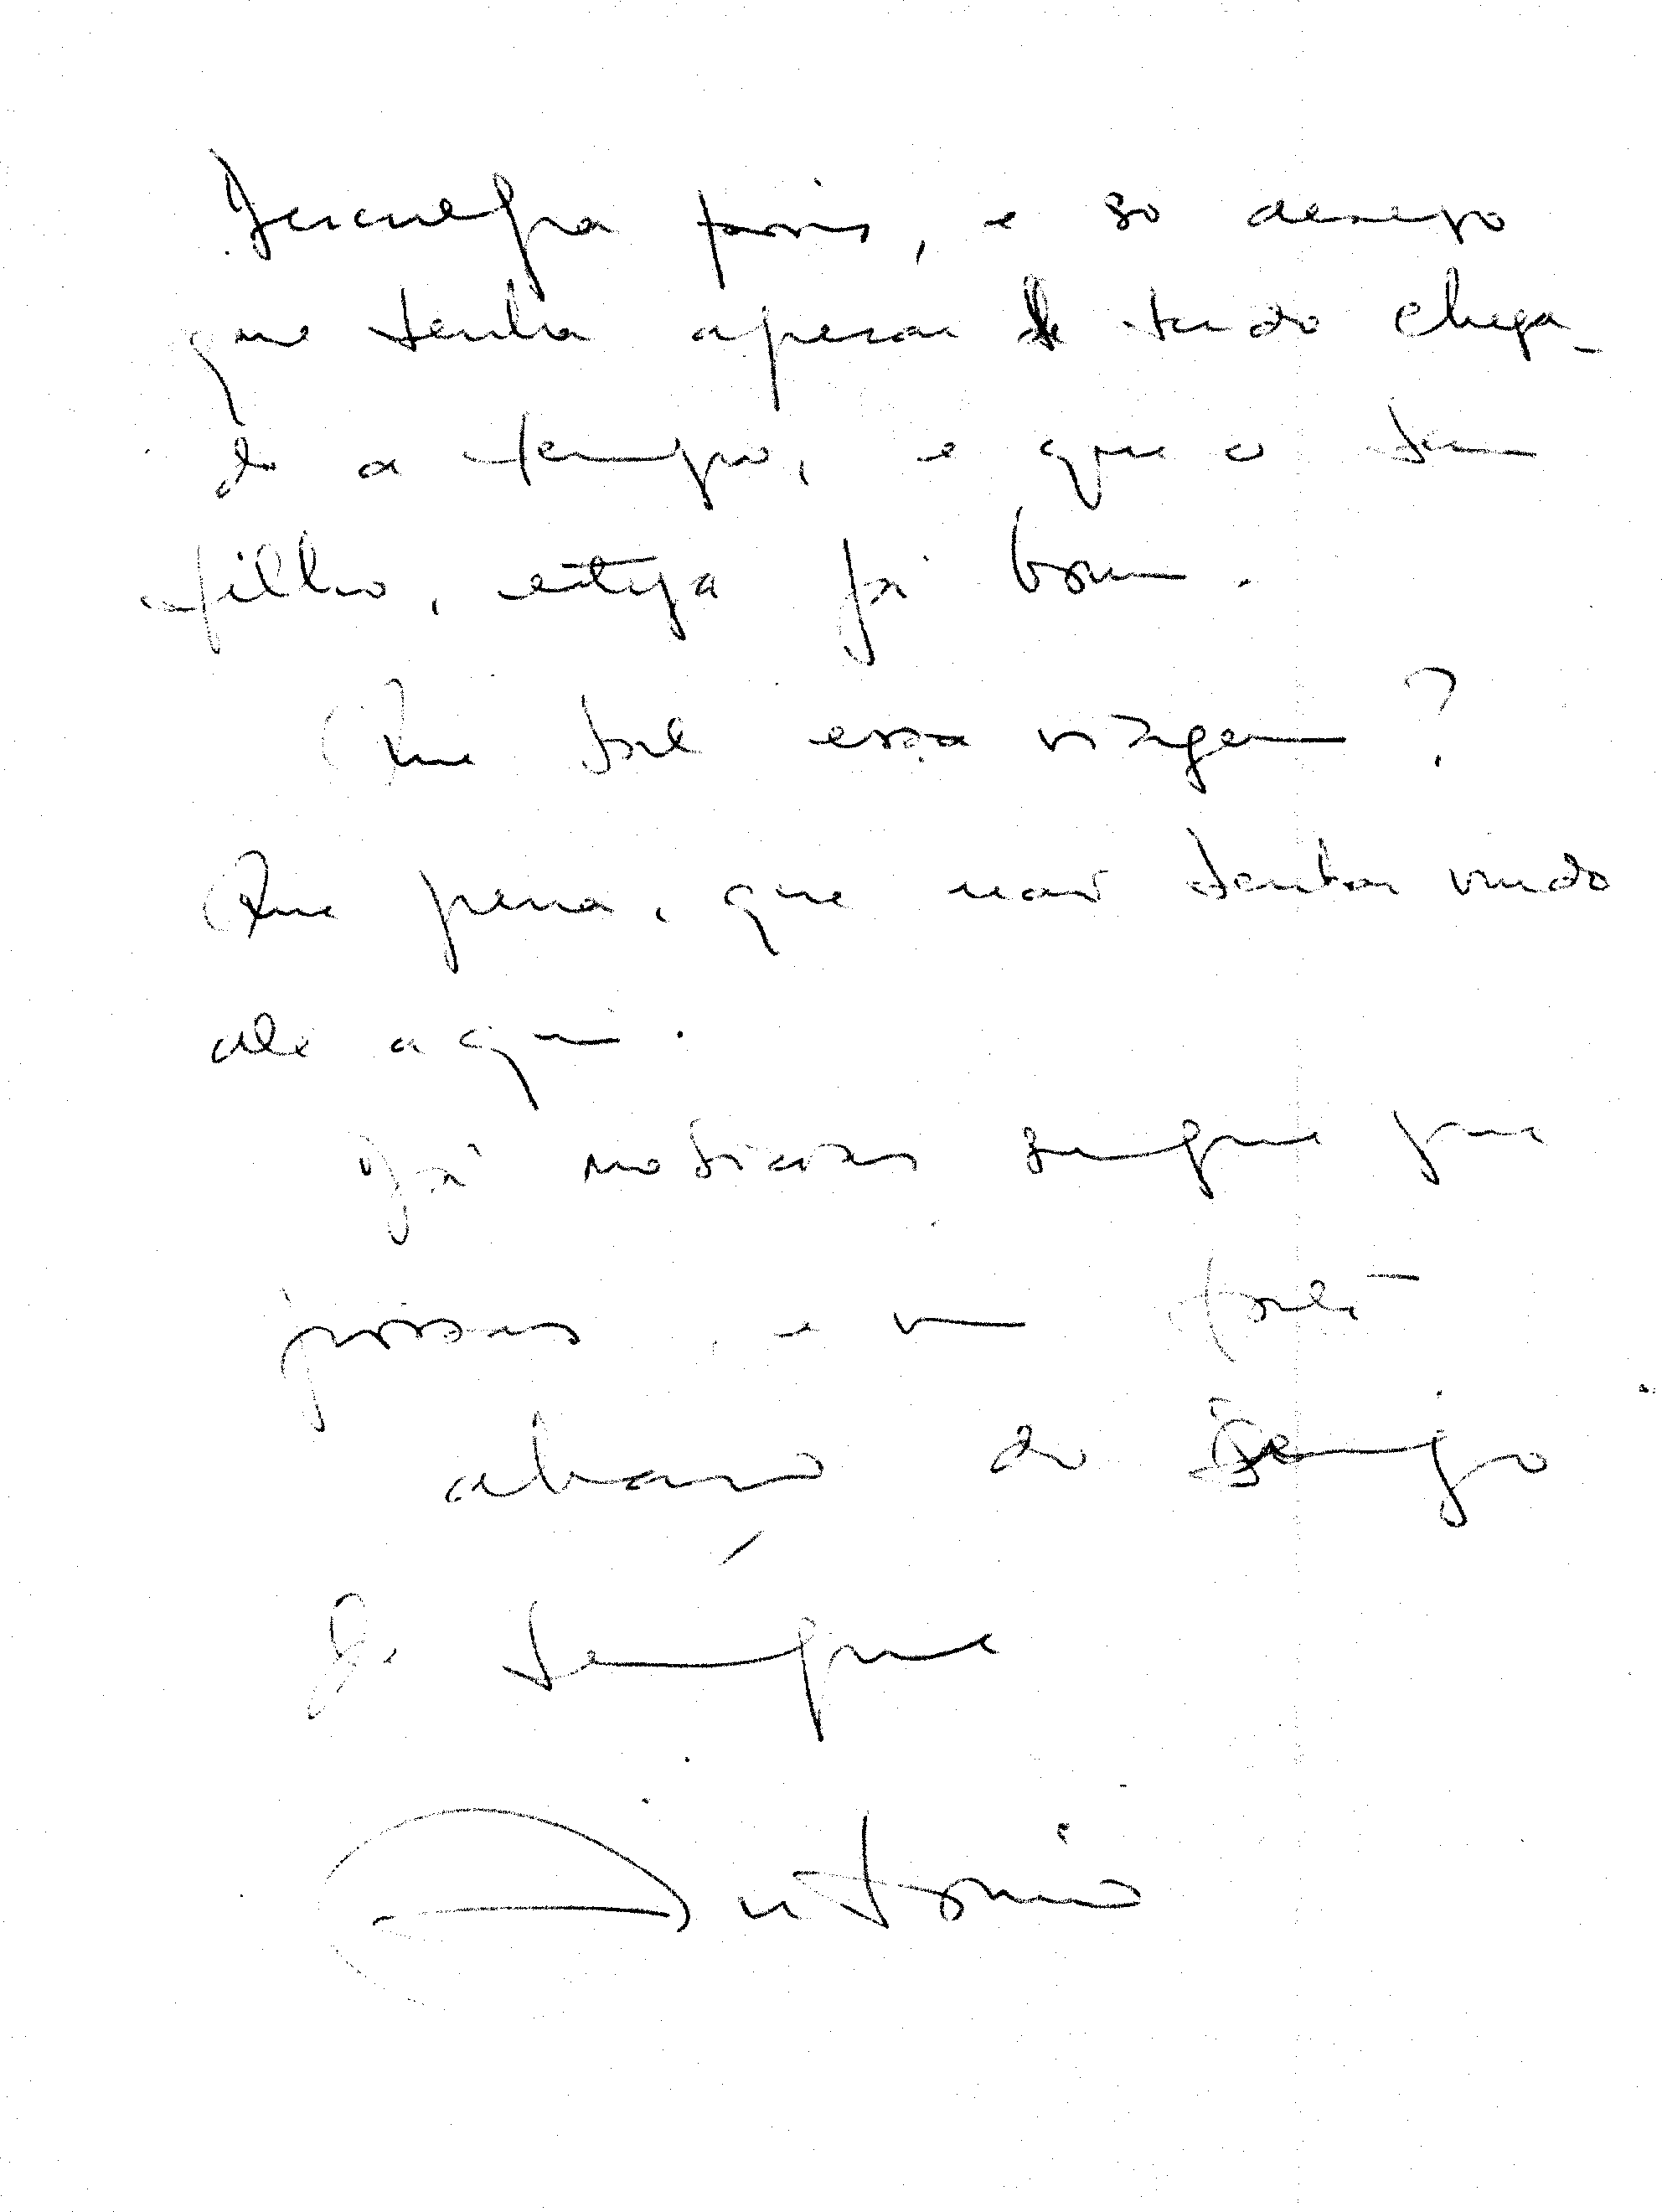 Desculpa pois, e so desejo
que tenha apesar de tudo chega-
do a tempo, e que o teu
filho, esteja já bom.
Que tal essa viagem?
Que pena, que não tenhas vindo
até aqui.
Dá noticias sempre que
possas, e um forte
abraço do amigo
de sempre
Antonio